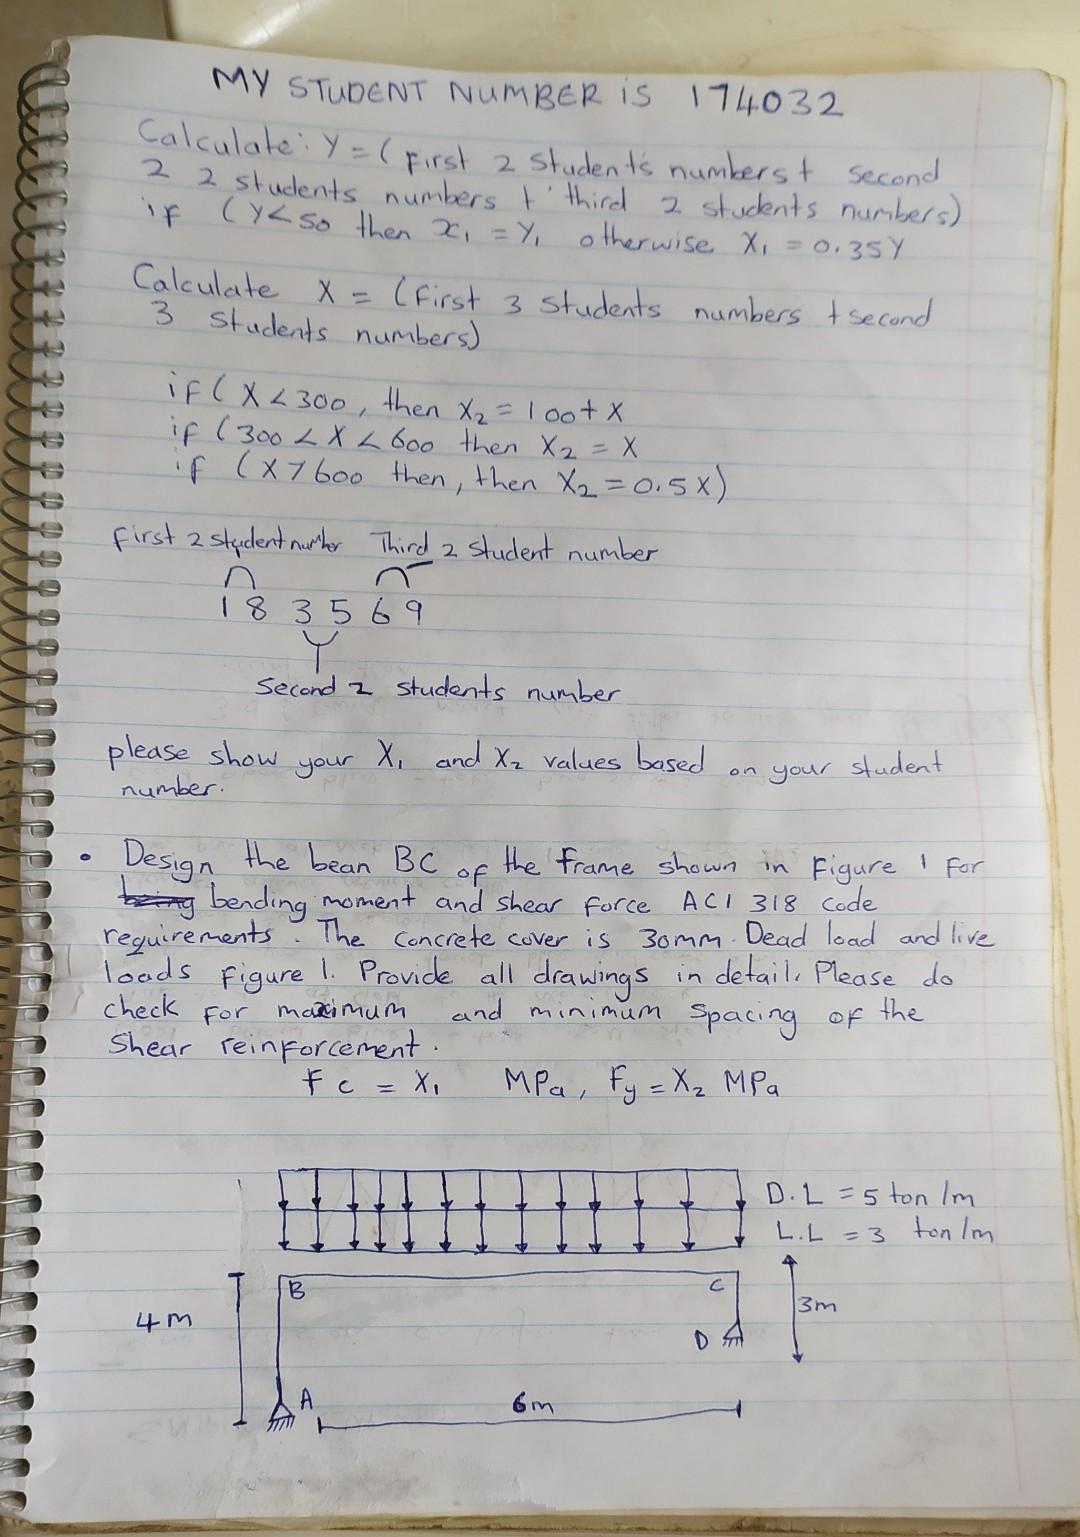 MY STUDENT NUMBER iS 174032
Calculate: Y = ( First 2 Student's numbers + second
2 2 students numbers + third 2 students numbers)
if (Y<50 then x1 = Y, otherwise X1 = 0.35Y
Calculate X = (First 3 Students numbers + second
3 Students numbers)
if ( X < 300, then X2 = 100 + X
if (300 < X < 600 then X2 = X
if (X > 600 then, then X2 = 0.5X)
first 2 student number Third 2 Student number
18 35 69
Second 2 students number
please show your X1 and X2 values based on your student
number.
• Design the bean BC of the frame shown in Figure 1 For
being bending moment and shear force ACI 318 code
requirements. The concrete cover is 30mm. Dead load and live
loads figure 1. Provide all drawings in detail. Please do
check for maximum and minimum spacing of the
Shear reinforcement.
Fc = X1 MPa, Fy = X2 MPa
D.L = 5 ton/m
L.L = 3 ton/m
B C
4m 3m
D
A 6m